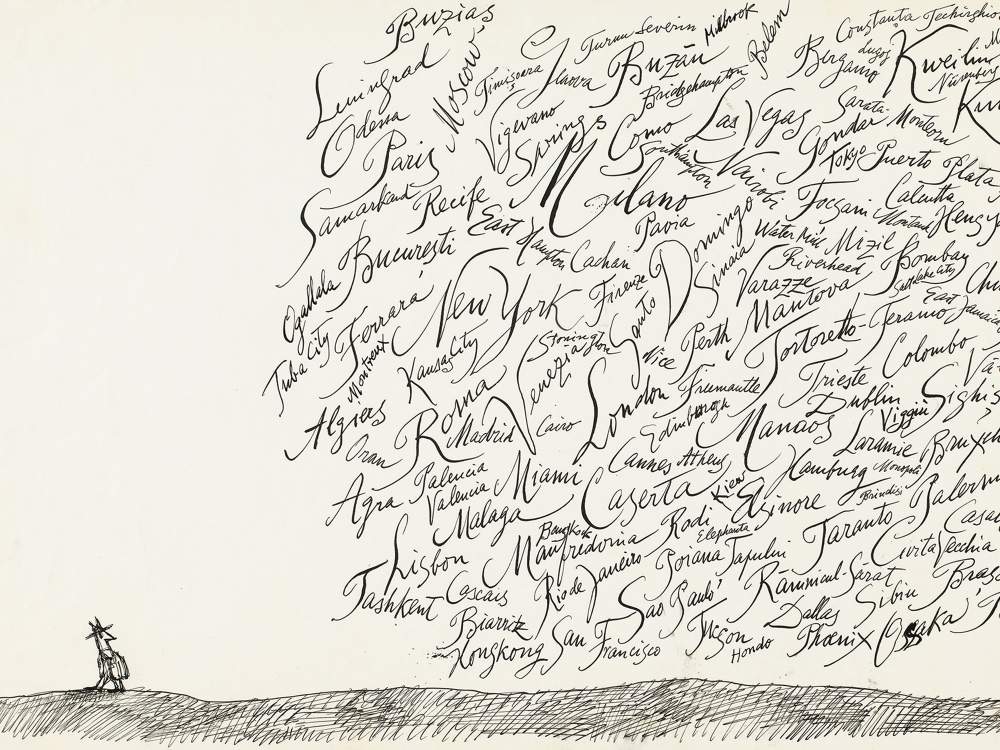 Buziás
Leningrad
Moscow
Timişoara
Genova
Turnu Severin
Millbrook
Buzău
Bridgehampton
Belem
Bergamo
Lugoj
Constanta
Techirghio
Kweilin
Nürnberg
Odessa
Paris
Vigevano
Springs
Como
Southampton
Las Vegas
Sarata-Monteoru
Gondar
Tokyo
Puerto Plata
Samarkand
Recife
East Hampton
Milano
Nairobi
Focşani
Calcutta
Montauk
Heng
București
Cachan
Pavia
Santo Domingo
Sinaia
Water Mill
Mizil
Bombay
Riverhead
Salt Lake City
Ogallala
Yuba City
Ferrara
New York
Firenze
Varazze
Mantova
East Jamaica
Montreux
Kansas City
Stonington
Venezia
Nice
Perth
Tortoretto-Teramo
Colombo
Algiers
Roma
London
Fremantle
Trieste
Dublin
Viggiù
Sighis
Oran
Madrid
Cairo
Edinburgh
Manaos
Laramie
Bruxel
Agra
Palencia
Valencia
Miami
Cannes
Athens
Hamburg
Monopoli
Malaga
Caserta
Kiev
Elsinore
Brindisi
Palerm
Lisbon
Bangkok
Manfredonia
Rodi
Elephanta
Taranto
Casa
Tashkent
Cascais
Rio de Janeiro
Poiana Tapului
Civita Vecchia
Biarritz
Sao Paulo
Râmnicul-Sărat
Sibiu
Braso
Hongkong
San Francisco
Tucson
Hondo
Dallas
Phoenix
Osaka